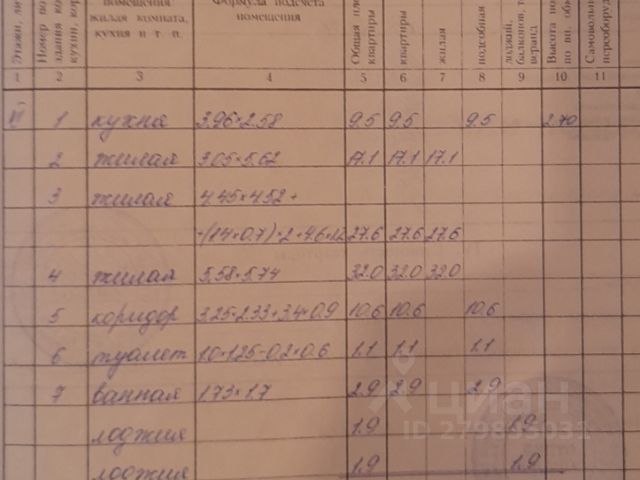 помещения жилая комната, кухня и т п. Формула подсчета помещения
Этажи Номер Общая квартиры квартиры жилая подсобная лоджий, балконов, веранд Высота Самовольно переоборудов
1 2 3 4 5 6 7 8 9 10 11
1 кухня 3.96×2.58 9.5 9.5 9.5 2.70
2 жилая 3.05×5.62 17.1 17.1 17.1
3 жилая 4.45×4.52+
27.6 27.6 27.6
4 жилая 5.58×5.74 32.0 32.0 32.0
5 коридор 3.25×2.33+3.4×0.9 10.6 10.6 10.6
6 туалет 1.0×1.25-0.2×0.6 1.1 1.1 1.1
7 ванная 1.73×1.7 2.9 2.9 2.9
лоджия 1.9 1.9
лоджия 1.9 1.9
циан
ID 279833932